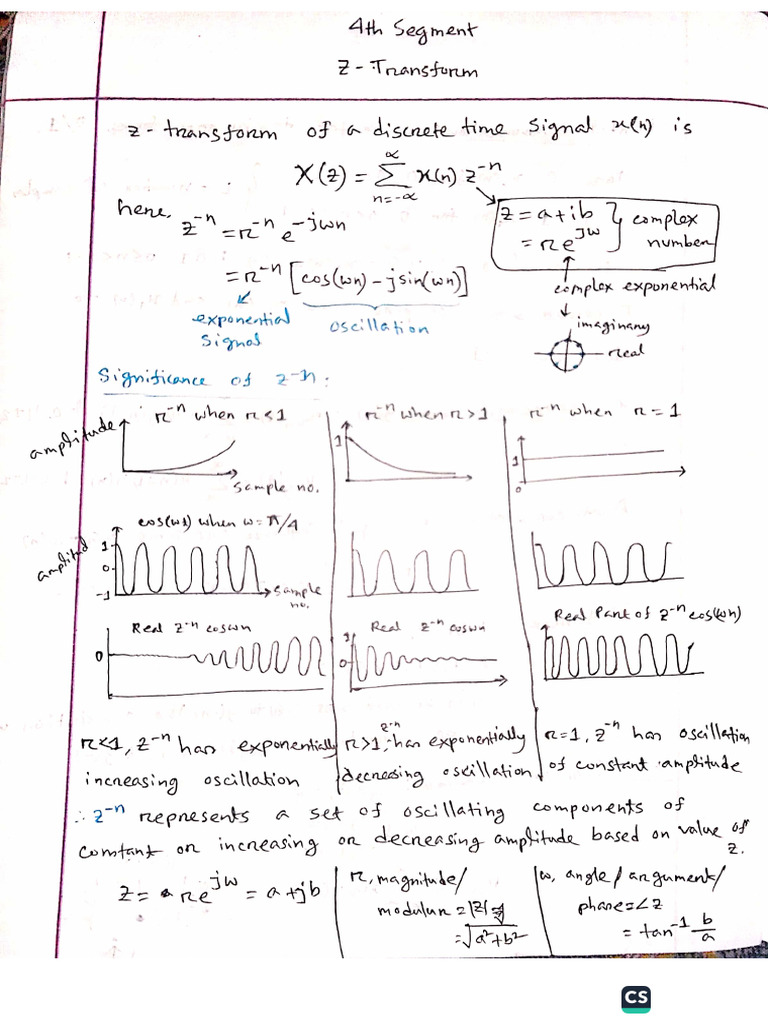 4th Segment
Z-Transform
z-transform of a discrete time signal x(n) is
X(z) = ∑ x(n) z⁻ⁿ
n=-∝
∝
here, z⁻ⁿ = r⁻ⁿ e^-jωn
z = a+ib
= re^jω
} complex number
= r⁻ⁿ [cos(ωn) - jsin(ωn)]
complex exponential
exponential signal
oscillation
imaginary
real
Significance of z⁻ⁿ:
r⁻ⁿ when r<1
r⁻ⁿ when r>1
r⁻ⁿ when r=1
amplitude
1
1
0
sample no.
cos(ω1) when ω=π/4
amplitud
1
0
-1
sample no.
Real z⁻ⁿ cosωn
Real z⁻ⁿ cosωn
Real Part of z⁻ⁿ cos(ωn)
0
0
r<1, z⁻ⁿ has exponentially
increasing oscillation
r>1, z⁻ⁿ has exponentially
decreasing oscillation
r=1, z⁻ⁿ has oscillation
of constant amplitude
∴ z⁻ⁿ represents a set of oscillating components of
constant or increasing or decreasing amplitude based on value of
z.
z = re^jω = a+jb
r, magnitude/
= |z| =
= √a²+b²
ω, angle/argument/
phase = ∠z
= tan⁻¹ b/a
CS